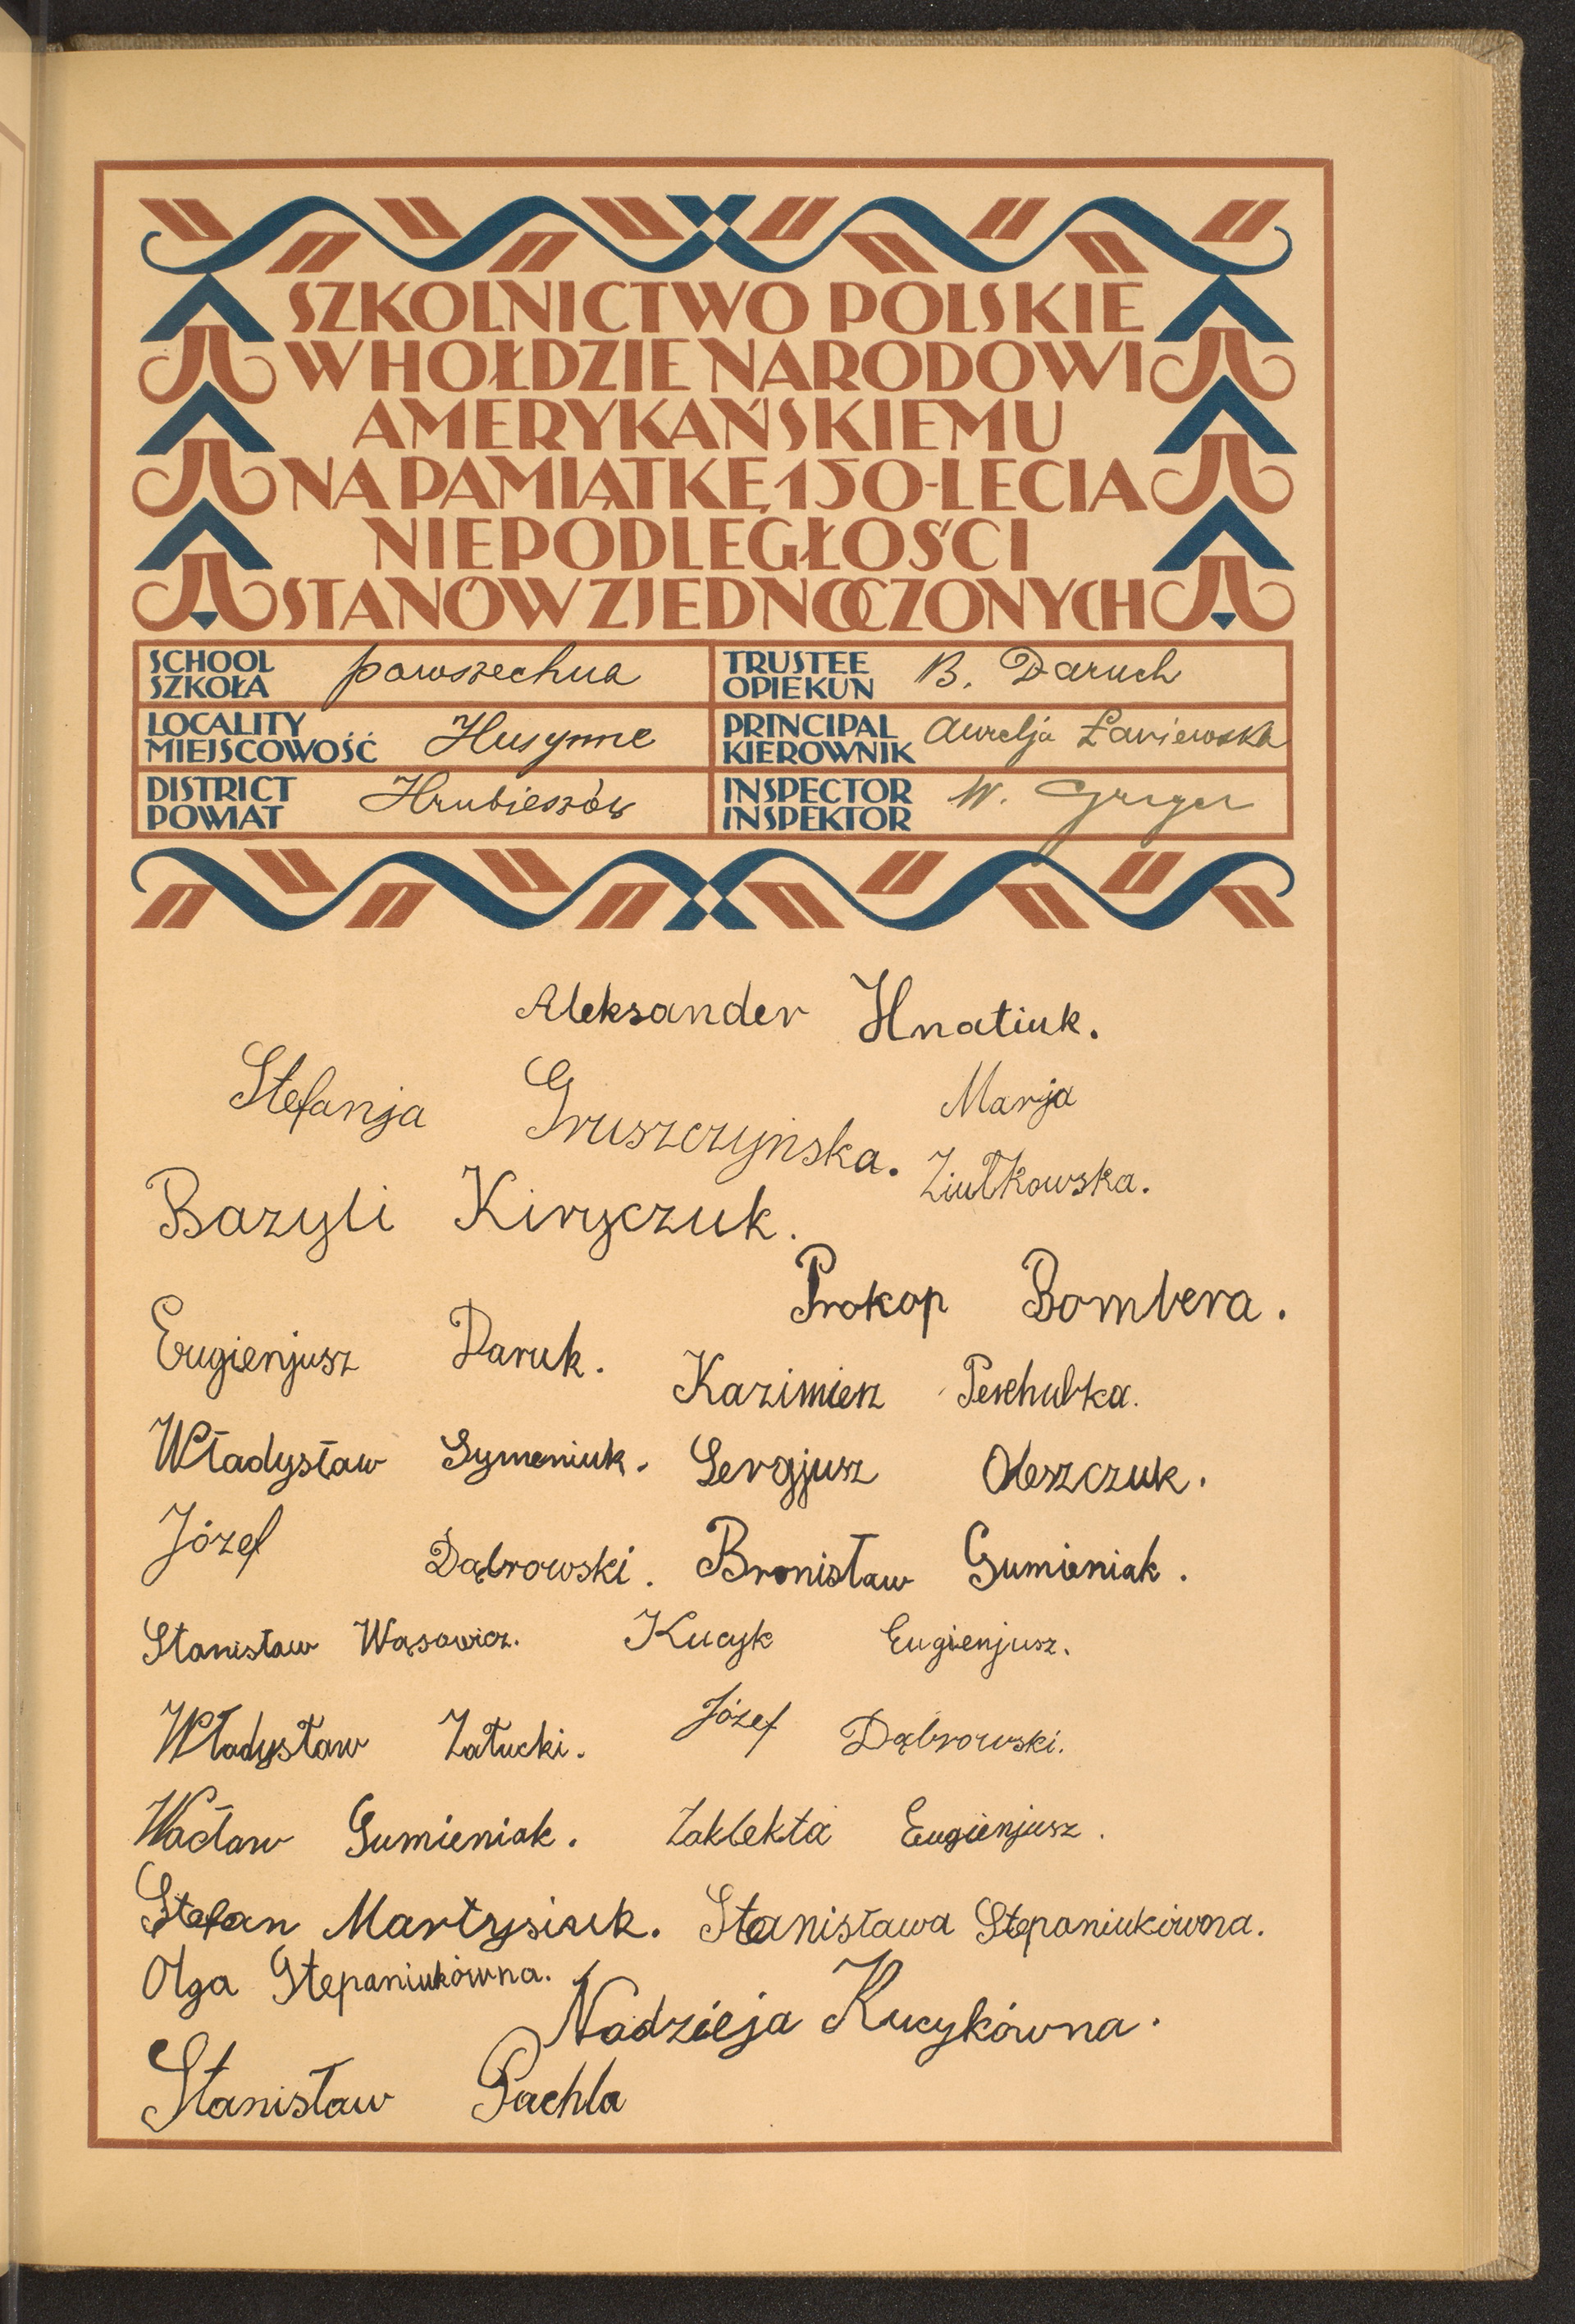 SZKOLNICTWO POLSKIE
W HOŁDZIE NARODOWI
AMERYKAŃSKIEMU
NA PAMIĄTKĘ 150-LECIA
NIEPODLEGŁOŚCI
STANÓW ZJEDNOCZONYCH
SCHOOL
SZKOŁA
powszechna
TRUSTEE
OPIEKUN
B. Daruch
LOCALITY
MIEJSCOWOŚĆ
Husynne
PRINCIPAL
KIEROWNIK
Aurelja Łaniewska
DISTRICT
POWIAT
Hrubieszów
INSPECTOR
INSPEKTOR
W.
Aleksander Hnatiuk.
Stefanja Gruszczyńska.
Marja
Ziułkowska.
Bazyli Kiryczuk.
Prokop Bombera.
Eugienjusz Daruk.
Kazimierz
Władysław Symeniuk. Sergjusz Oleszczuk.
Józef Dąbrowski. Bronisław Gumieniak.
Stanisław Wąsowicz. Kucyk Eugienjusz.
Władysław Załucki. Józef Dąbrowski.
Wacław Gumieniak. Zaklekta Eugienjusz.
Stefan Martysiuk. Stanisława Stepaniukówna.
Olga Stepaniukówna.
Nadzieja Kucykówna.
Stanisław Pachla